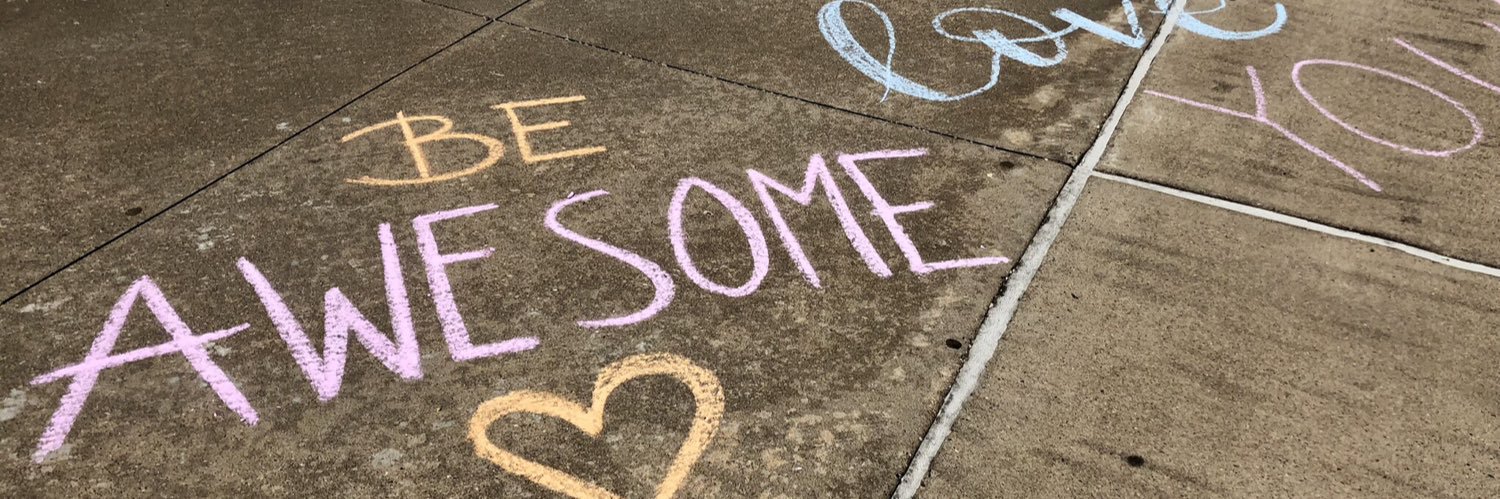 love
YOU
BE
AWESOME